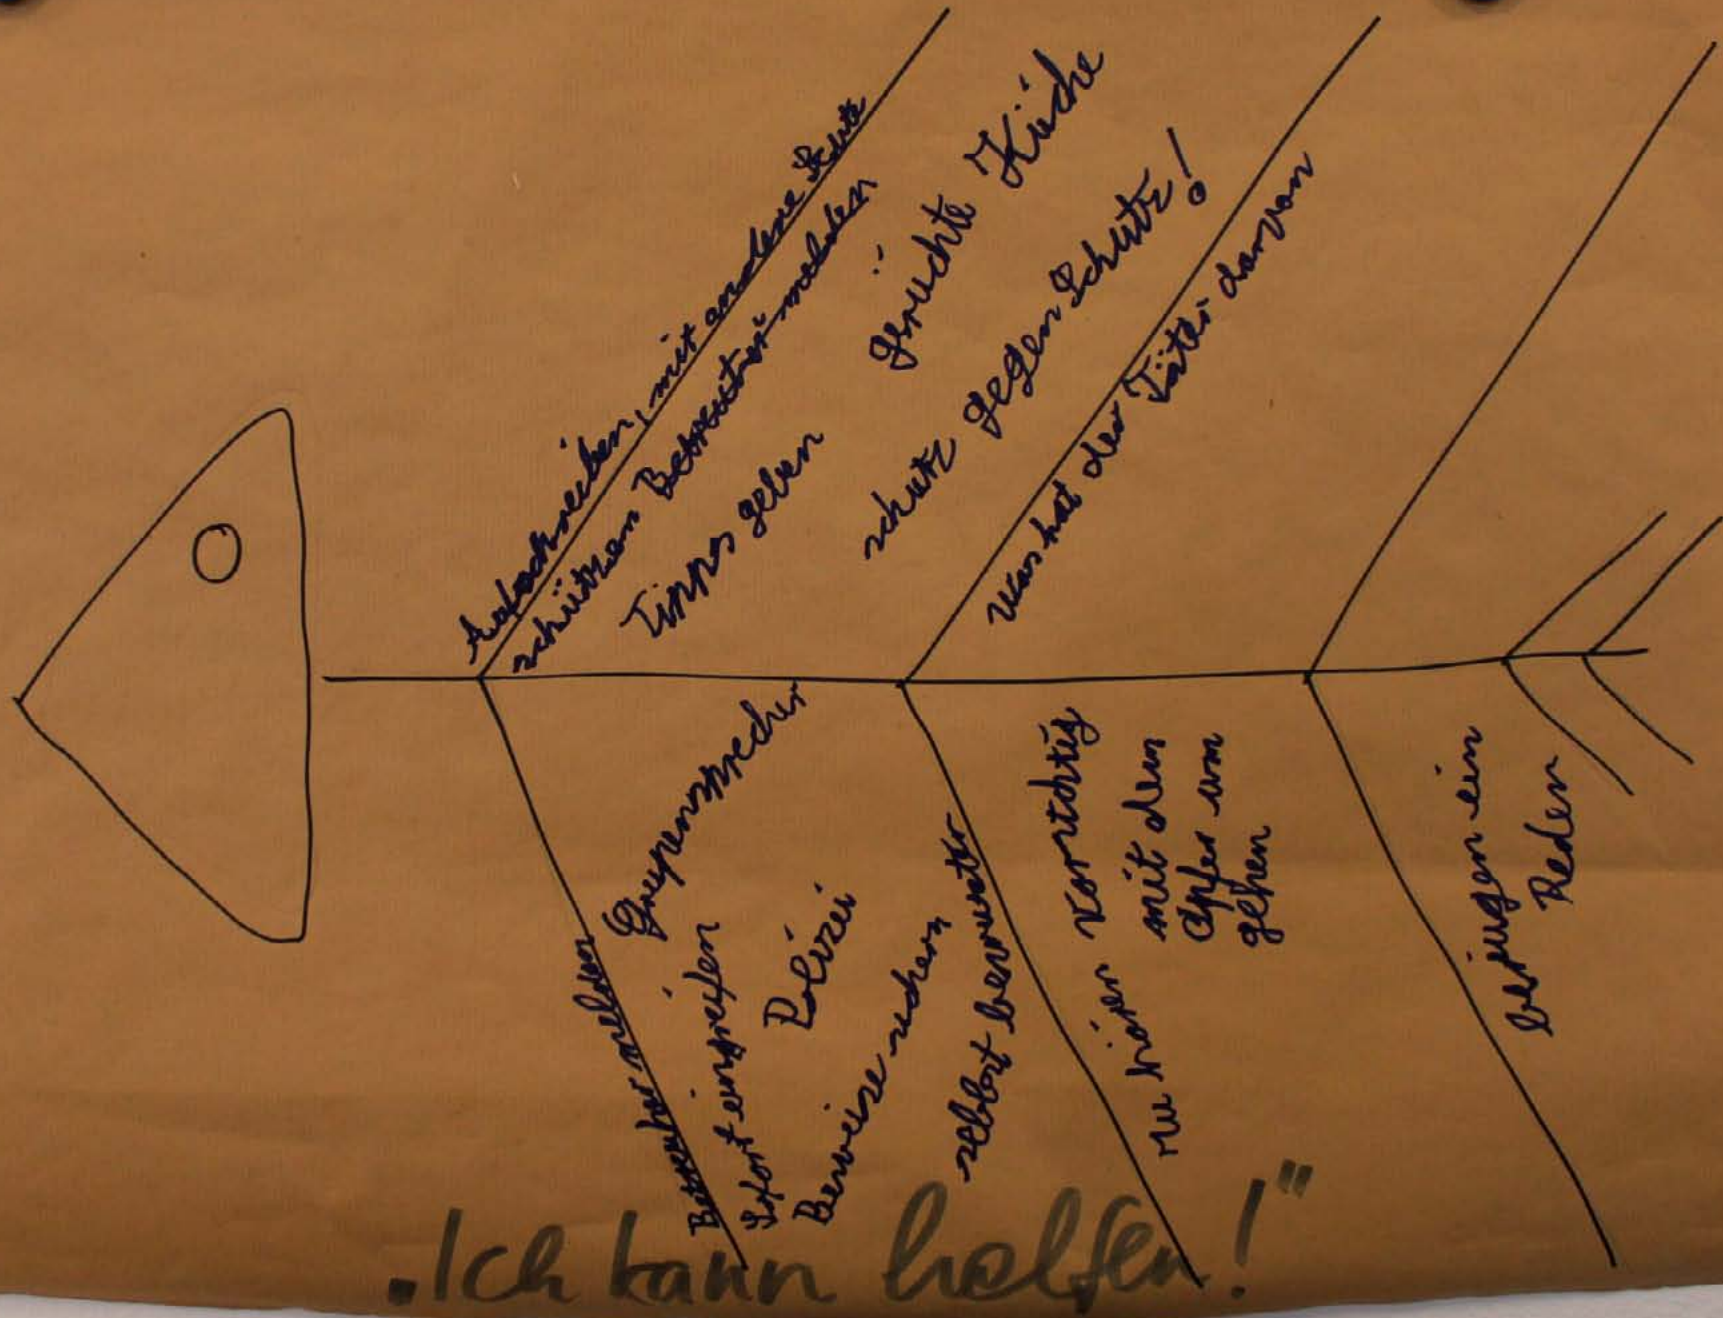 mit andere Leute
schützen Betreuter melden
Tipps geben
Grüchte Küche
schutz gegen Schutz!
was hat der Täter davon
melden
Grupensprecher
Sofort eingreifen
Polizei
Beweise sichern
selbst bewuster
zu hören
vorsichtig
mit dem
Opfer um
gehen
ein
Reden
„Ich kann helfen!"